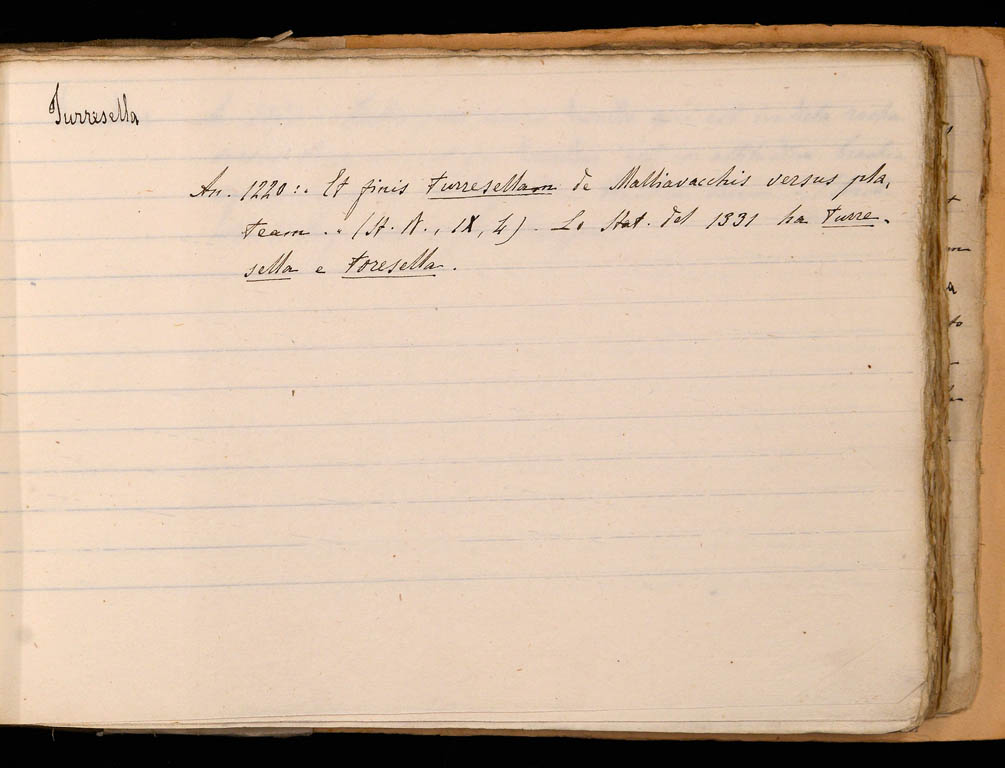 Turresella
An. 1220: "Et finis turresellam de Malliavacchis versus pla,
team." (St. N., IX, 4) - Lo Stat. del 1331 ha turre-
sella e toresella.